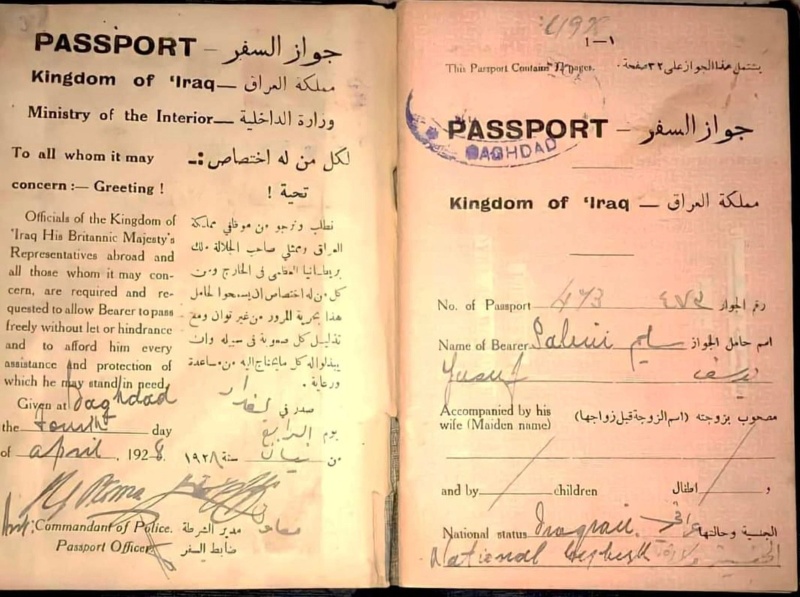 PASSPORT – جواز السفر
Kingdom of 'Iraq — مملكة العراق
Ministry of the Interior — وزارة الداخلية
To all whom it may
concern :— Greeting !
لكل من له اختصاص :-
تحية !
Officials of the Kingdom of
'Iraq His Britannic Majesty's
Representatives abroad and
all those whom it may con-
cern, are required and re-
quested to allow Bearer to pass
freely without let or hindrance
and to afford him every
assistance and protection of
which he may stand in need.
نطلب ونرجو من موظفي مملكة
العراق وممثلي صاحب الجلالة ملك
بريطانيا العظمى في الخارج ومن
كل من له اختصاص ان يسمحوا لحامل
هذا بحرية المرور من غير توان ومع
تذليل كل صعوبة في سبيله وان
يبذلوا له كل مايحتاج اليه من مساعدة
ورعاية .
Given at Baghdad صدر في بغداد
the fourth day يوم الرابع
of april, 1928. من نيسان سنة ١٩٢٨
Commandant of Police. معاون مدير الشرطة
Passport Officer ضابط السفر
١—1
This Passport Contains 32 pages. يشتمل هذا الجواز على ٣٢ صفحة .
PASSPORT – جواز السفر
BAGHDAD
Kingdom of 'Iraq — مملكة العراق
No. of Passport 473 ٤٧٣ رقم الجواز
Name of Bearer Salim سليم اسم حامل الجواز
Yusuf يوسف
Accompanied by his
wife (Maiden name)
مصحوب بزوجته (اسم الزوجة قبل زواجها)
and by children و اطفال
National status عراقي الجنسية وحالتها
National